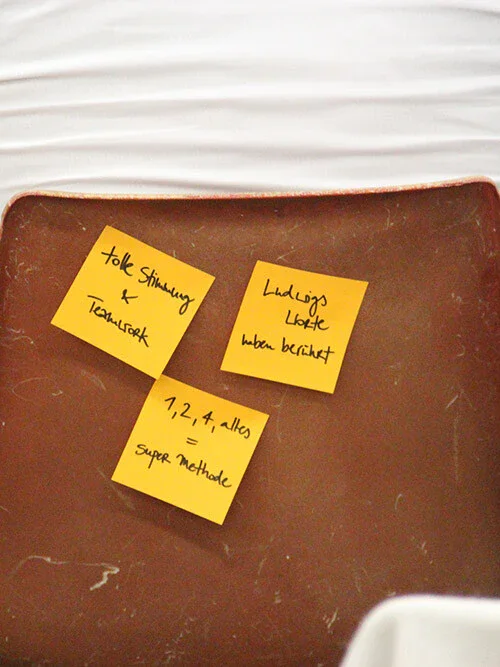 tolle Stimmung
&
Teamwork
Ludwigs
Worte
haben berührt
1, 2, 4, alles
=
super Methode